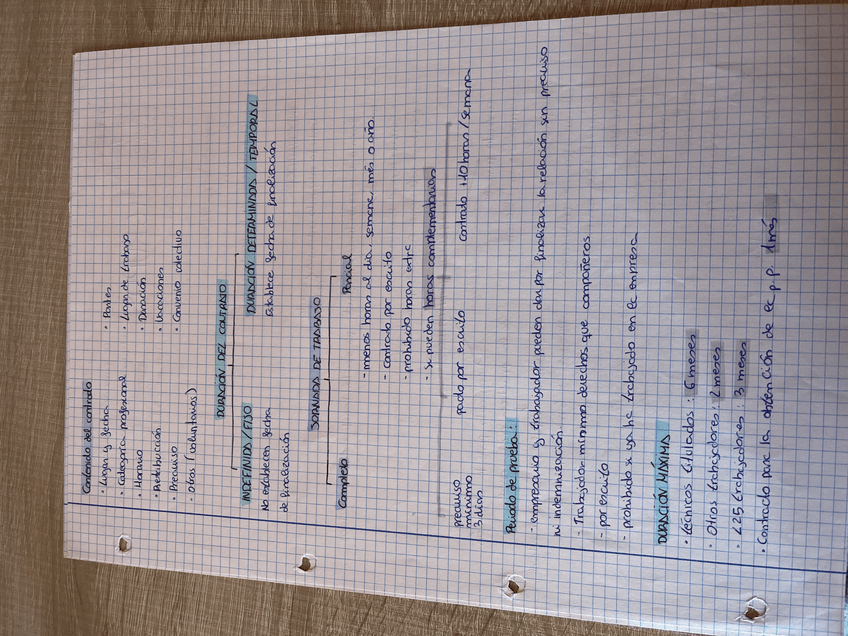 Contenido del contrato
· Lugar y fecha
· Categoría profesional
· Horario
· Retribución
· Preaviso
· Otros (voluntarios)
· Partes
· Lugar de trabajo
· Duración
· Vacaciones
· Convenio colectivo
DURACIÓN DEL CONTRATO
INDEFINIDA / FIJO
No establecen fecha
de finalización
DURACIÓN DETERMINADA / TEMPORAL
Establece fecha de finalización
JORNADA DE TRABAJO
Completo
Parcial
- menos horas al día, semana, mes o año.
- Contrato por escrito
- prohibido horas extra
- Si pueden horas complementarias
preaviso
mínimo
3 días
pacto por escrito
contrato +10 horas / semana
Periodo de prueba:
- empresario y trabajador pueden dar por finalizar la relación sin preaviso
ni indemnización.
- Trabajador mismo derechos que compañeros.
- por escrito
- prohibido si ya ha trabajado en la empresa
DURACIÓN MÁXIMA
· técnicos titulados: 6 meses
· Otros trabajadores: 2 meses
· <25 trabajadores: 3 meses
· Contrato para la obtención de p.p. 1 més